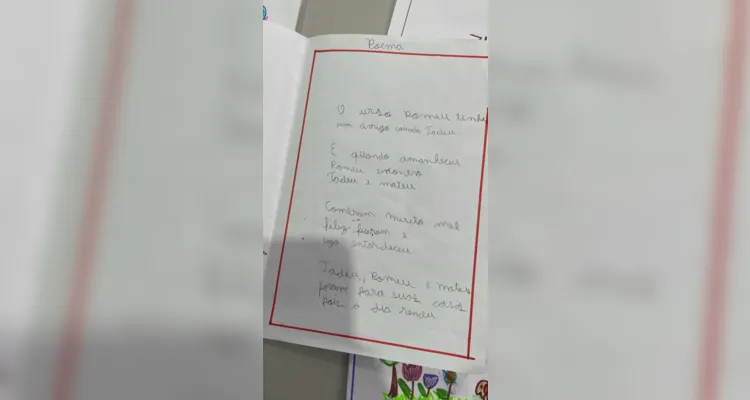 Poema
O urso Romeu tinha
um amigo comido Tadeu
E quando amanheceu
Romeu encontro
Tadeu e mateu
Comeram muito mel
feliz ficaram e
logo entardeceu
Tadeu, Romeu e Mateu
forome para suas casas
pois o dia rendeu